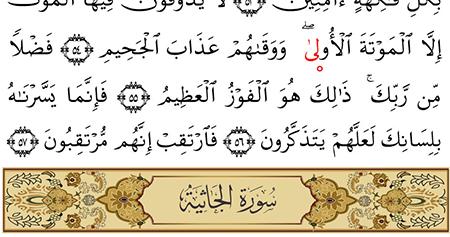 بِكُلِّ فَٰكِهَةٍ ءَامِنِينَ ۝٥٥ لَا يَذُوقُونَ فِيهَا ٱلْمَوْتَ
إِلَّا ٱلْمَوْتَةَ ٱلْأُولَىٰ ۖ وَوَقَىٰهُمْ عَذَابَ ٱلْجَحِيمِ ۝٥٤ فَضْلًا
مِّن رَّبِّكَ ۚ ذَٰلِكَ هُوَ ٱلْفَوْزُ ٱلْعَظِيمُ ۝٥٥ فَإِنَّمَا يَسَّرْنَٰهُ
بِلِسَانِكَ لَعَلَّهُمْ يَتَذَكَّرُونَ ۝٥٦ فَٱرْتَقِبْ إِنَّهُم مُّرْتَقِبُونَ ۝٥٧
سُورَةُ الجَاثِيَةِ